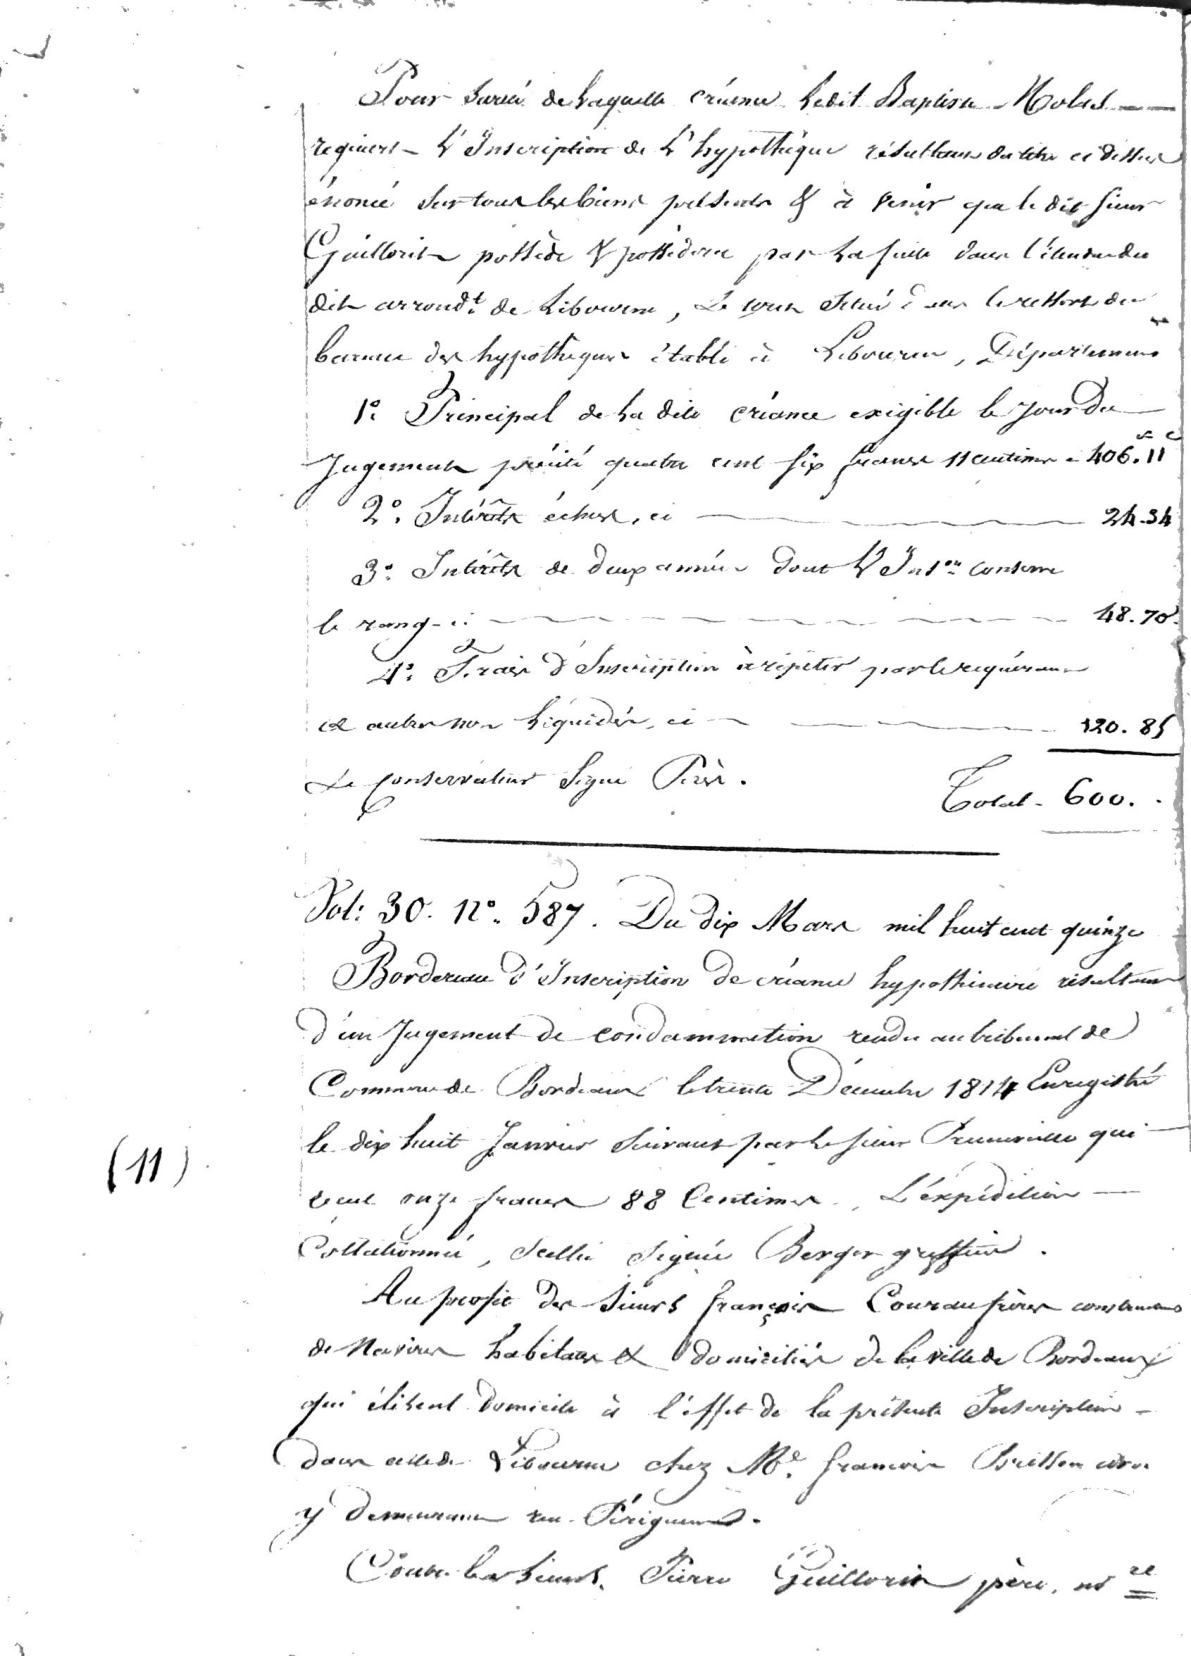 Pour sureté de laquelle créance ledit Baptiste Molas
requiert L'Inscription de L'hypothèque résultant du titre ci dessus
énoncé sur tous les biens présents & à venir que le dit sieur
Guillorit possède & possèdera par la suite dans l'étendue du
dit arrondt. de Libourne, Le tout situé dans le ressort du
bureau des hypothèques établi à Libourne, Département
1º. Principal de la dite créance exigible le jour du
Jugement précité quatre cent six francs 11 centimes - 406.11
2º. Intérêts échus, ci 24.34
3º. Intérêts de deux années dont L'Inson conserve
le rang - ci 48.70
4º. Frais d'Inscription à répéter par le requérant
et autres non liquidés, ci 120.85
Le Conservateur Signé
Total - 600.
Vol: 30. Nº. 587. Du dix Mars mil huit cent quinze
Bordereau d'Inscription de créance hypothécaire résultant
d'un Jugement de condamnation rendu au tribunal de
Commerce de Bordeaux le trente Décembre 1814 Enregistré
le dix huit Janvier suivant par le sieur qui
(11)
reçut onze francs 88 Centimes, L'expédition
Collationnée, scellée signée Berger greffier.
Au profit des sieurs françois Courau frères constructeurs
de Navires habitans et domiciliés de la ville de Bordeaux
qui élisent domicile à l'effet de la présente Inscription -
dans celle de Libourne chez Me. françois Brisson
y demeurant rue Périgueux.
Contre les sieurs Pierre Guillorit père, nre